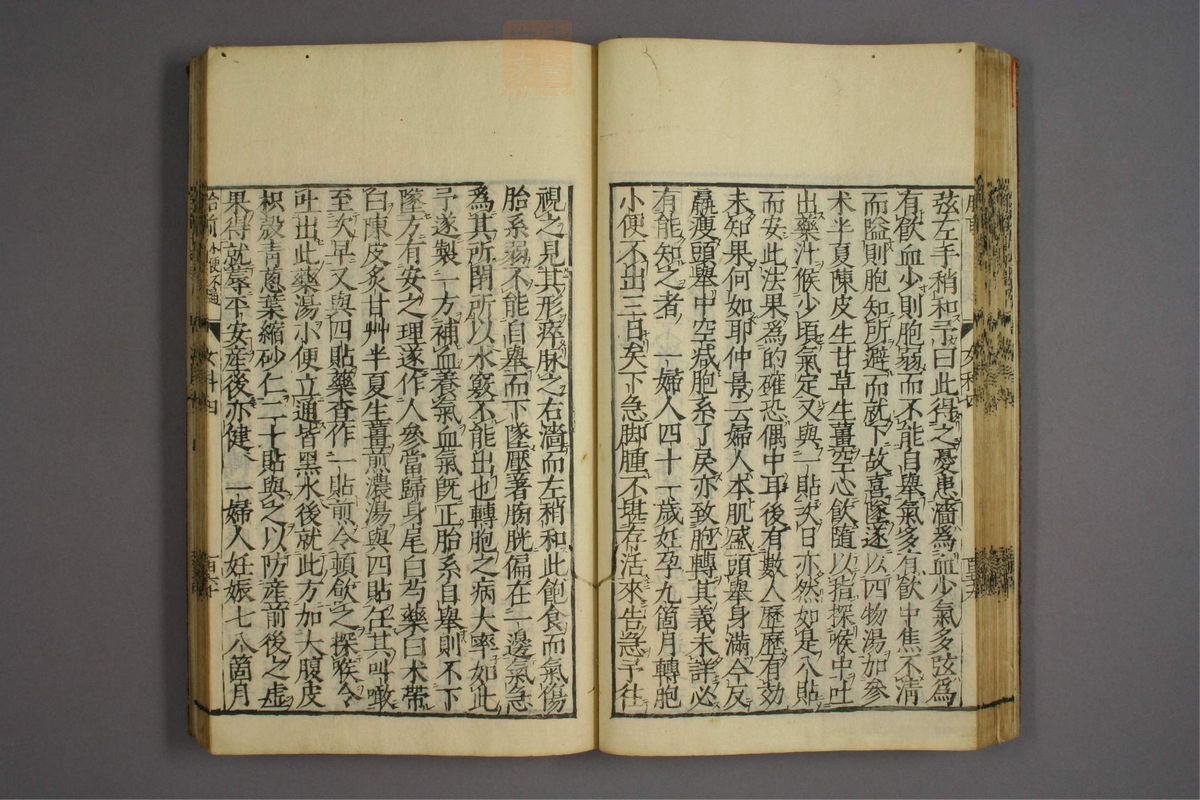 弦左手稍和予曰此得之憂患濇為血少氣多弦為
有飲血少則胞弱而不能自舉氣多有飲中焦不清
而隘則胞知所避而就下故喜墜遂以四物湯加參
术半夏陳皮生甘草生薑空心飲隨以指探喉中吐
出藥汁候少頃氣定又與一貼次日亦然如是八貼
而安此法果為的確恐偶中耳後有數人歷歷有効
未知果何如耶仲景云婦人本肌盛頭舉身滿今反
羸瘦頭舉中空減胞系了戾亦致胞轉其義未詳必
有能知之者 一婦人四十一歲妊孕九箇月轉胞
小便不出三日矣下急脚腫不堪存活來告急予往
視之見其形瘁脉之右濇而左稍和此飽食而氣傷
胎系弱不能自舉而下墜壓著膀胱偏在一邊氣急
為其所閉所以水竅不能出也轉胞之病大率如此
予遂製一方補血養氣血氣既正胎系自舉則不下
墜方有安之理遂作人參當歸身尾白芍藥白术帶
白陳皮炙甘艸半夏生薑煎濃湯與四貼任其叫噉
至次早又與四貼藥査作一貼煎令頓飲之探喉令
吐出此藥湯小便立通皆黑水後就此方加大腹皮
枳殼青葱葉縮砂仁二十貼與之以防産前後之虚
果得就蓐平安産後亦健 一婦人妊娠七八箇月
胎前 小便不通 女科四